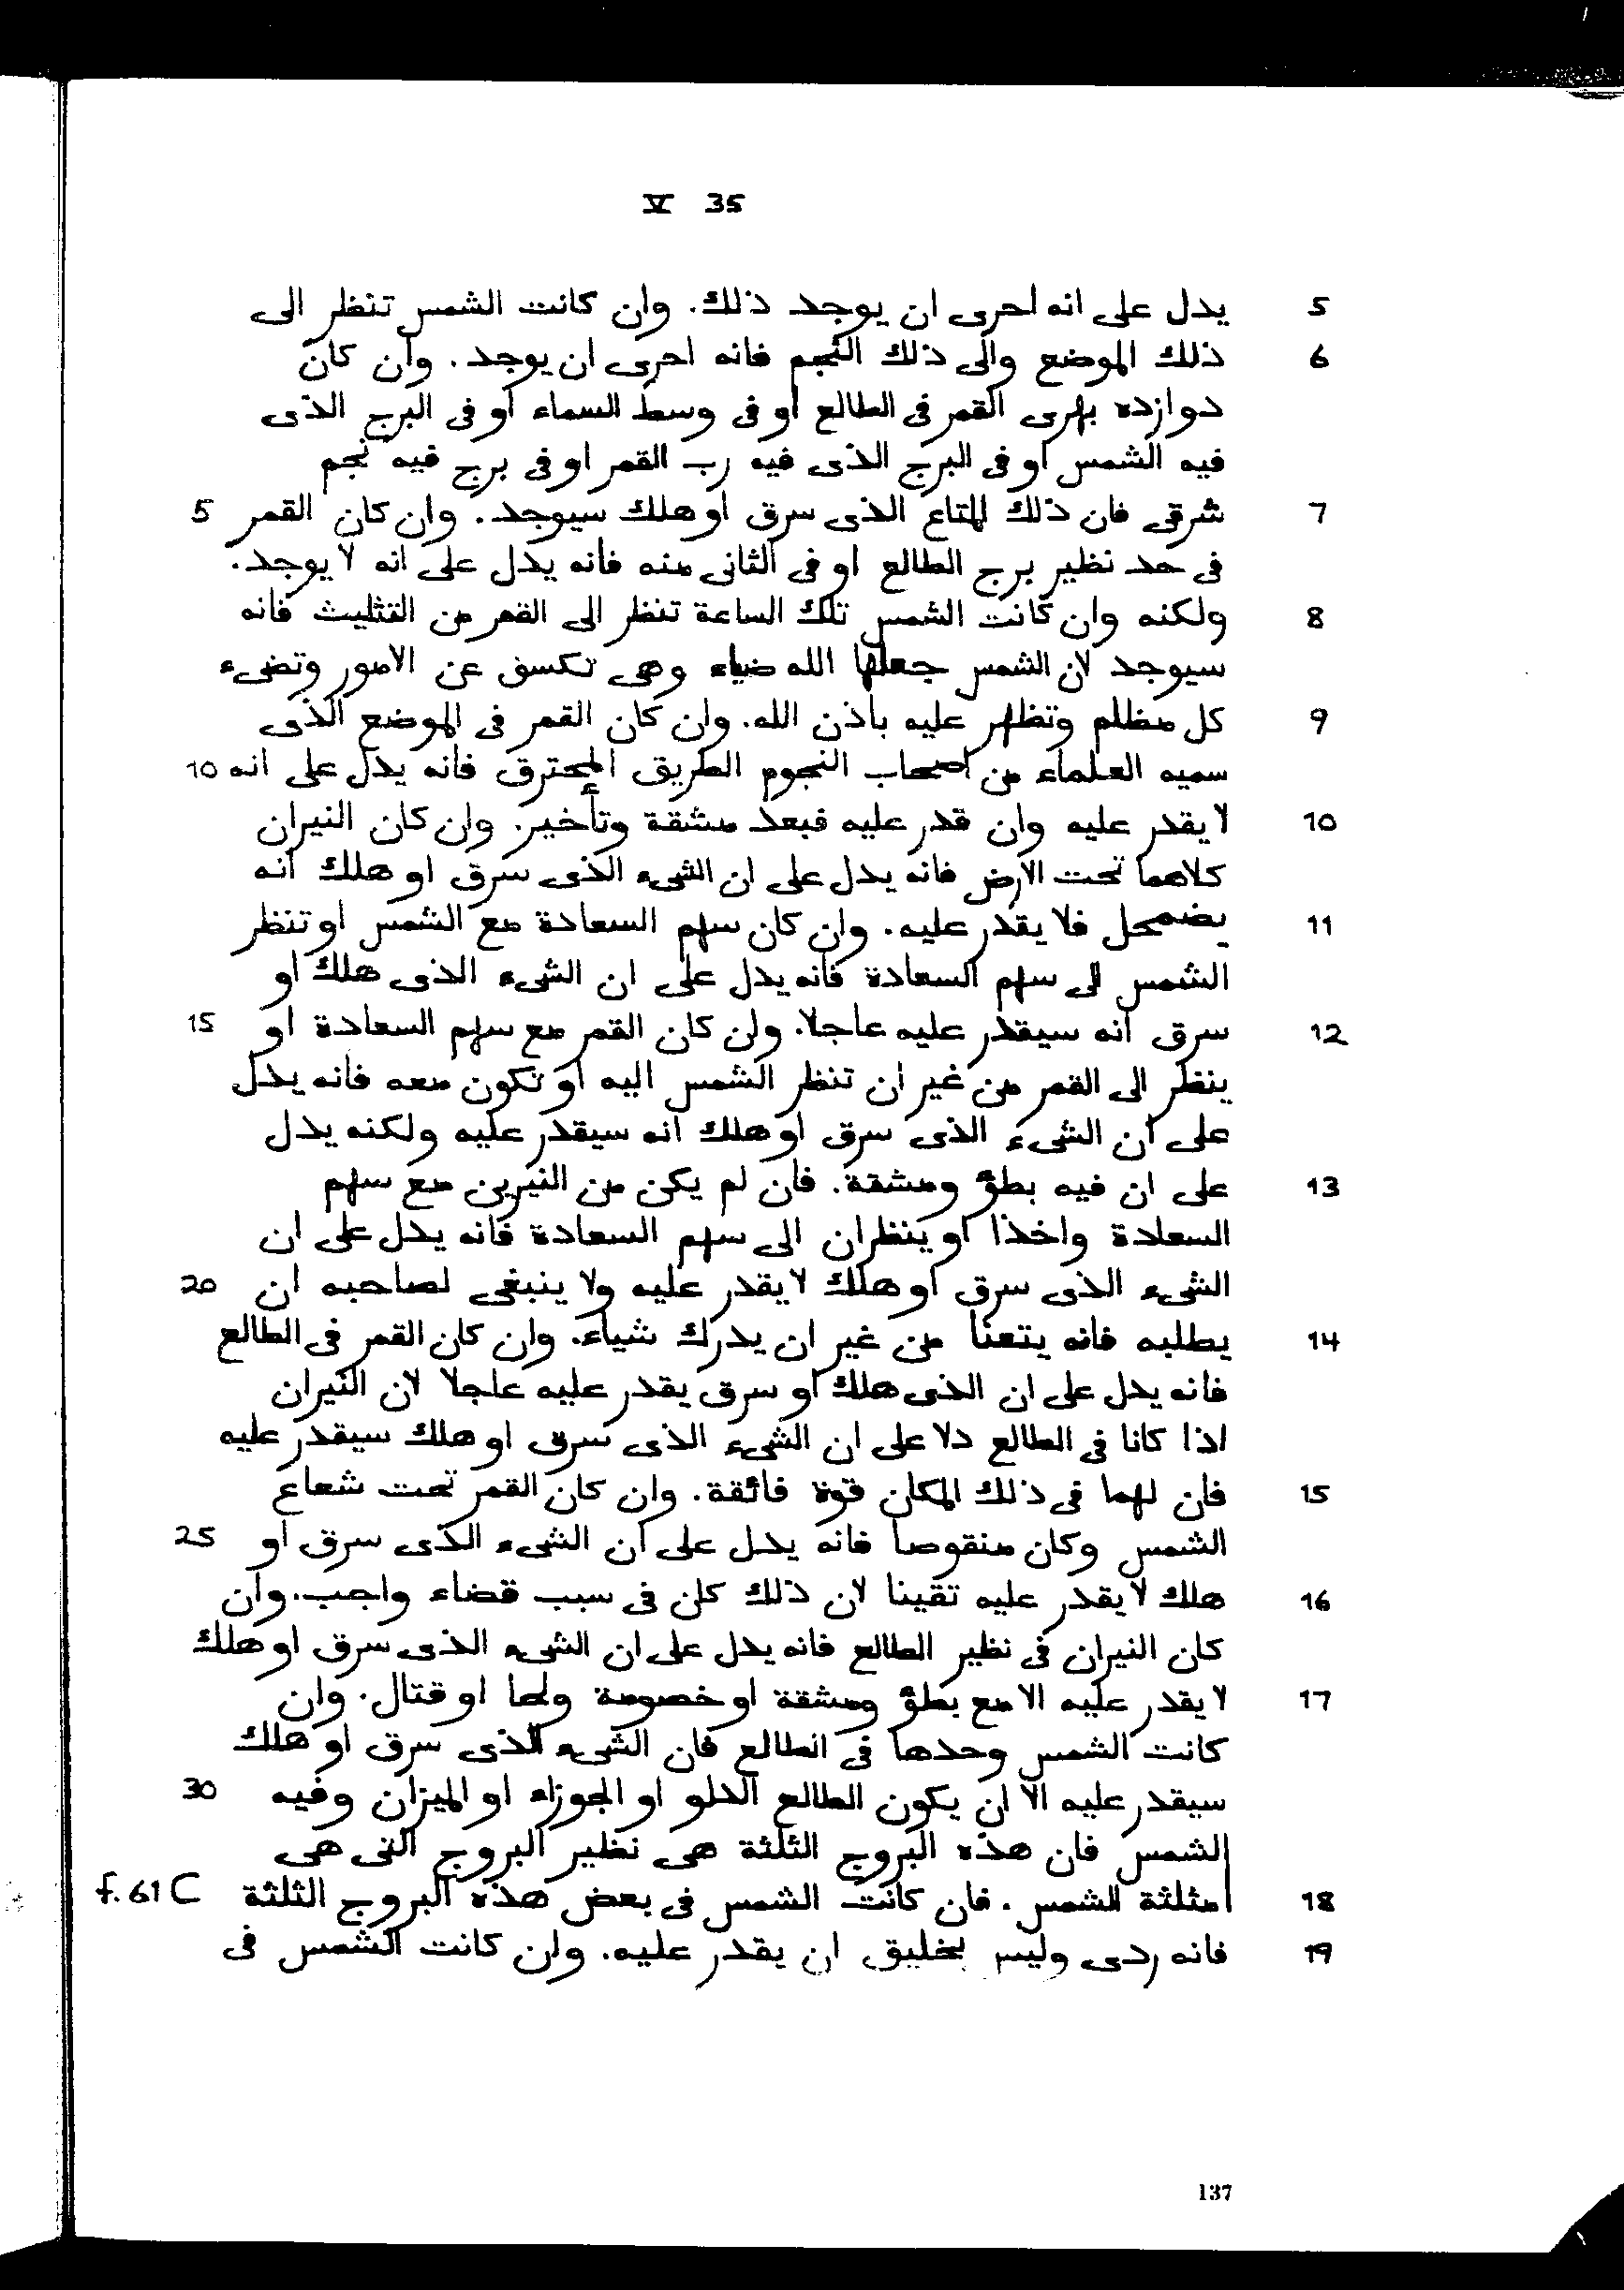 V 35
5 يدل على انه احرى ان يوجد ذلك. وان كانت الشمس تنظر الى
6 ذلك الموضع والى ذلك النجم فانه احرى ان يوجد. وان كان
دوازده بهرى القمر فى الطالع او فى وسط السماء او فى البرج الذى
فيه الشمس او فى البرج الذى فيه رب القمر او فى برج فيه نجم
7 شرقى فان ذلك المتاع الذى سرق او هلك سيوجد. وان كان القمر 5
فى حد نظير برج الطالع او فى الثانى منه فانه يدل على انه لا يوجد.
8 ولكنه وان كانت الشمس تلك الساعة تنظر الى القمر من التثليث فانه
سيوجد لان الشمس جعلها الله ضياء وهى تكسف عن الامور وتضىء
9 كل مظلم وتظهر عليه باذن الله. وان كان القمر فى الموضع الذى
سميه العلماء من اصحاب النجوم الطريق المحترق فانه يدل على انه 10
10 لا يقدر عليه وان قدر عليه فبعد مشقة وتأخير. وان كان النيران
كلاهما تحت الارض فانه يدل على ان الشىء الذى سرق او هلك انه
11 يضمحل فلا يقدر عليه. وان كان سهم السعادة مع الشمس او تنظر
الشمس الى سهم السعادة فانه يدل على ان الشىء الذى هلك او
12 سرق انه سيقدر عليه عاجلا. وان كان القمر مع سهم السعادة او 15
ينظر الى القمر من غير ان تنظر الشمس اليه او تكون معه فانه يدل
على ان الشىء الذى سرق او هلك انه سيقدر عليه ولكنه يدل
13 على ان فيه بطؤ ومشقة. فان لم يكن من النيرين مع سهم
السعادة واخذا او ينظران الى سهم السعادة فانه يدل على ان
الشىء الذى سرق او هلك لا يقدر عليه ولا ينبغى لصاحبه ان 20
14 يطلبه فانه يتعنا من غير ان يدرك شياء. وان كان القمر فى الطالع
فانه يدل على ان الذى هلك او سرق يقدر عليه عاجلا لان النيران
اذا كانا فى الطالع دلا على ان الشىء الذى سرق او هلك سيقدر عليه
15 فان لهما فى ذلك المكان قوة فائقة. وان كان القمر تحت شعاع
الشمس وكان منقوصا فانه يدل على ان الشىء الذى سرق او 25
16 هلك لا يقدر عليه تقينا لان ذلك كان فى سبب قضاء واجب. وان
كان النيران فى نظير الطالع فانه يدل على ان الشىء الذى سرق او هلك
17 لا يقدر عليه الا مع بطؤ ومشقة او خصومة ولحا او قتال. وان
كانت الشمس وحدها فى الطالع فان الشىء الذى سرق او هلك
سيقدر عليه الا ان يكون الطالع الدلو او الجوزاء او الميزان وفيه 30
الشمس فان هذه البروج الثلثة هى نظير البروج التى هى
18 مثلثة الشمس. فان كانت الشمس فى بعض هذه البروج الثلثة f. 61 C
19 فانه ردى وليس بخليق ان يقدر عليه. وان كانت الشمس فى
137